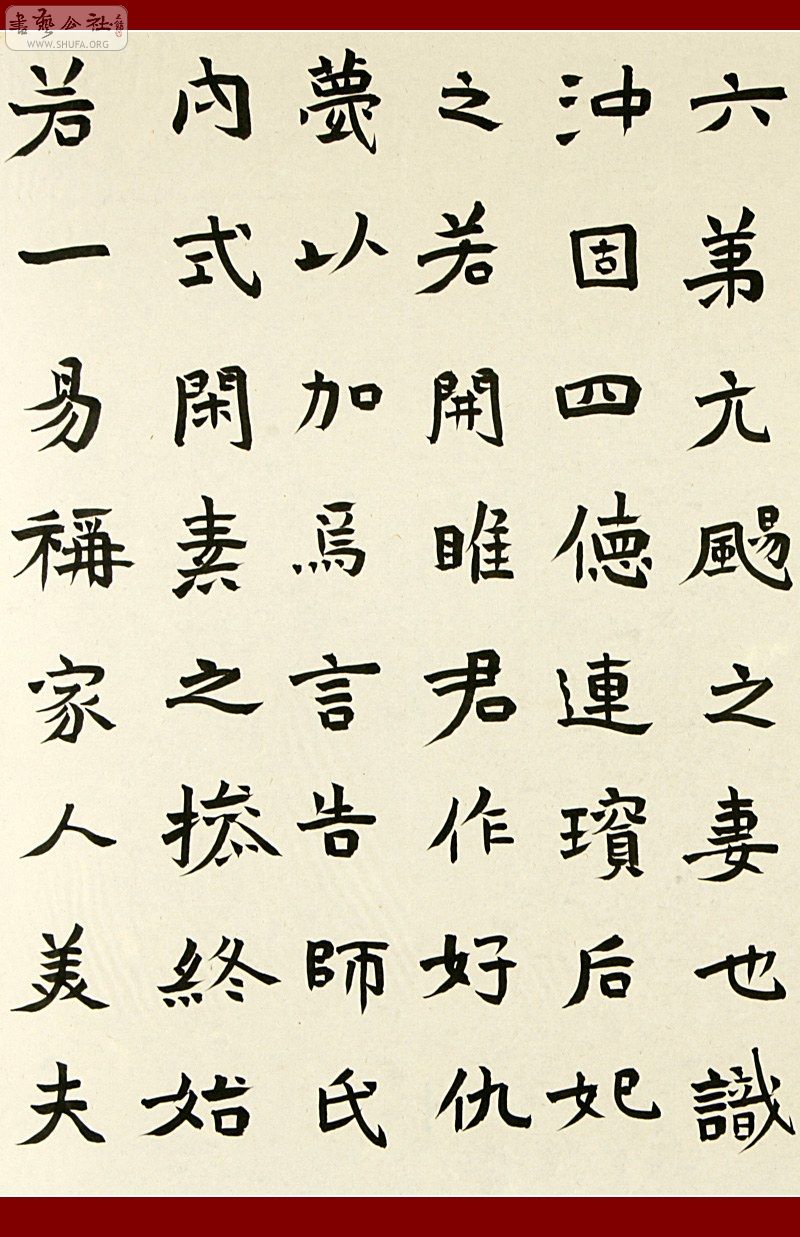 書藝公社
WWW.SHUFA.ORG
六弟亢颺之妻也識
沖固四德連璸后妃
之若開雎君作好仇
蔑以加焉言告師氏
內式閑素之操終始
若一易稱家人美夫